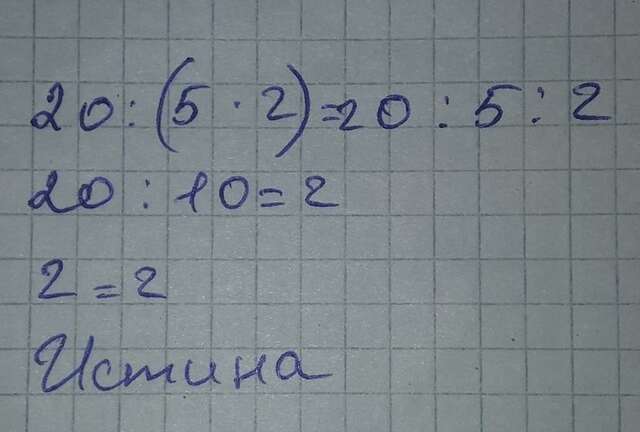 20 : (5 · 2) = 20 : 5 : 2
20 : 10 = 2
2 = 2
Истина